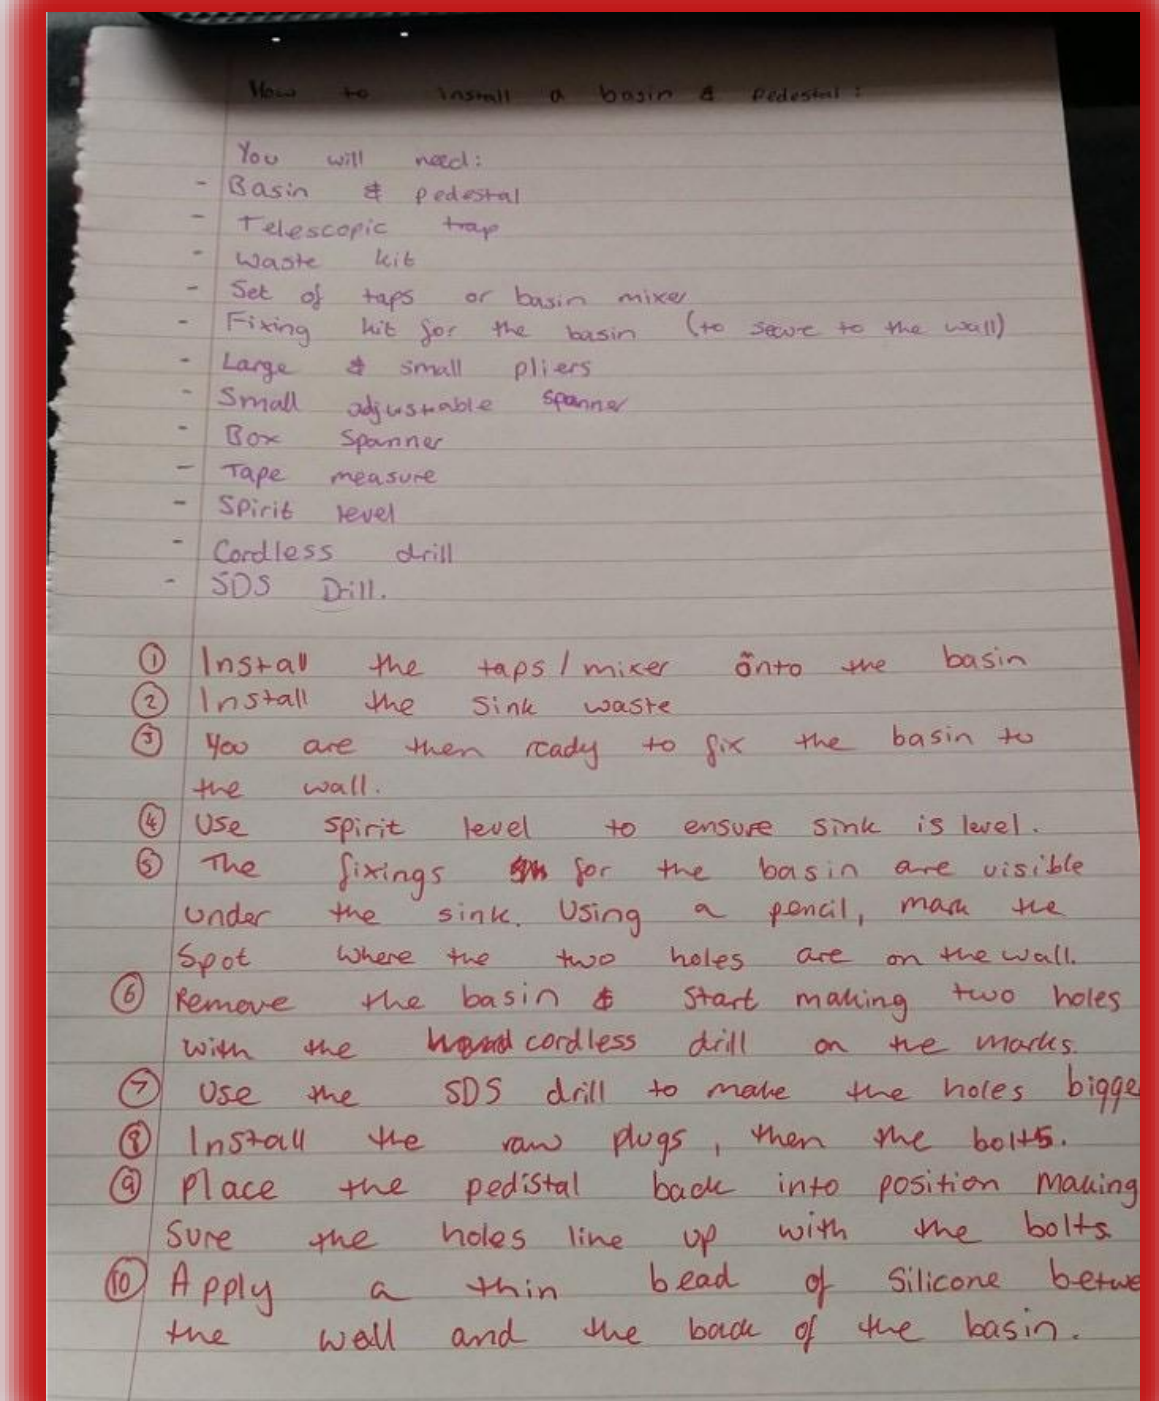 How to install a basin & pedestal:
You will need:
- Basin & pedestal
- Telescopic trap
- Waste kit
- Set of taps or basin mixer
- Fixing kit for the basin (to secure to the wall)
- Large & small pliers
- Small adjustable spanner
- Box Spanner
- Tape measure
- Spirit level
- Cordless drill
- SDS Drill.
① Install the taps/mixer onto the basin
② Install the sink waste
③ You are then ready to fix the basin to
the wall.
④ Use spirit level to ensure sink is level.
⑤ The fixings for the basin are visible
under the sink. Using a pencil, mark the
Spot where the two holes are on the wall.
⑥ Remove the basin & start making two holes
with the cordless drill on the marks.
⑦ Use the SDS drill to make the holes bigge
⑧ Install the raw plugs, then the bolts.
⑨ Place the pedistal back into position making
Sure the holes line up with the bolts
⑩ Apply a thin bead of Silicone betwe
the wall and the back of the basin.